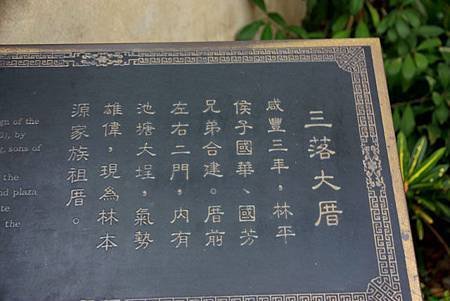 三落大厝
咸豐三年，林平
侯子國華、國芳
兄弟合建。厝前
左右二門，內有
池塘大埕，氣勢
雄偉，現為林本
源家族祖厝。
gn of the
by
sons of
the
nd plaza
the